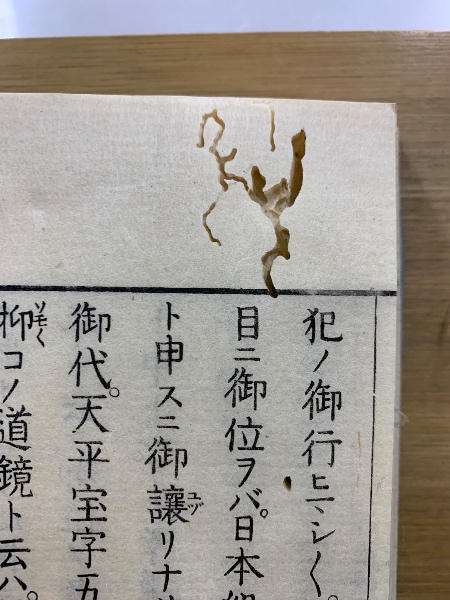 犯ノ御行ヒヽシく。
目ニ御位ヲバ。日本
ト申スニ御讓リナ
御代。天平宝字五
抑コノ道鏡ト云ハ。